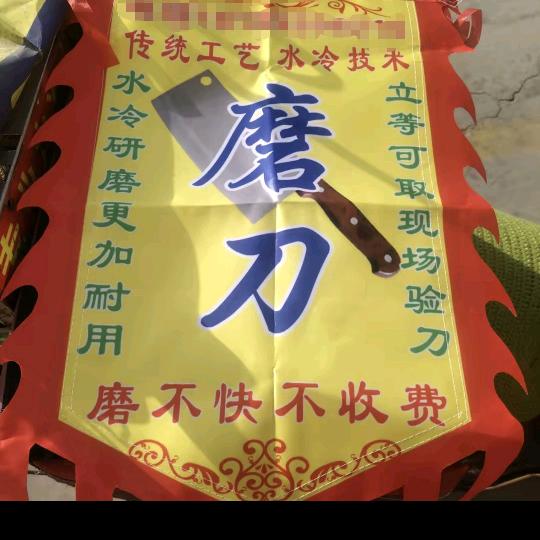 传统工艺 水冷技术
水冷研磨更加耐用
磨刀
立等可取现场验刀
磨不快不收费